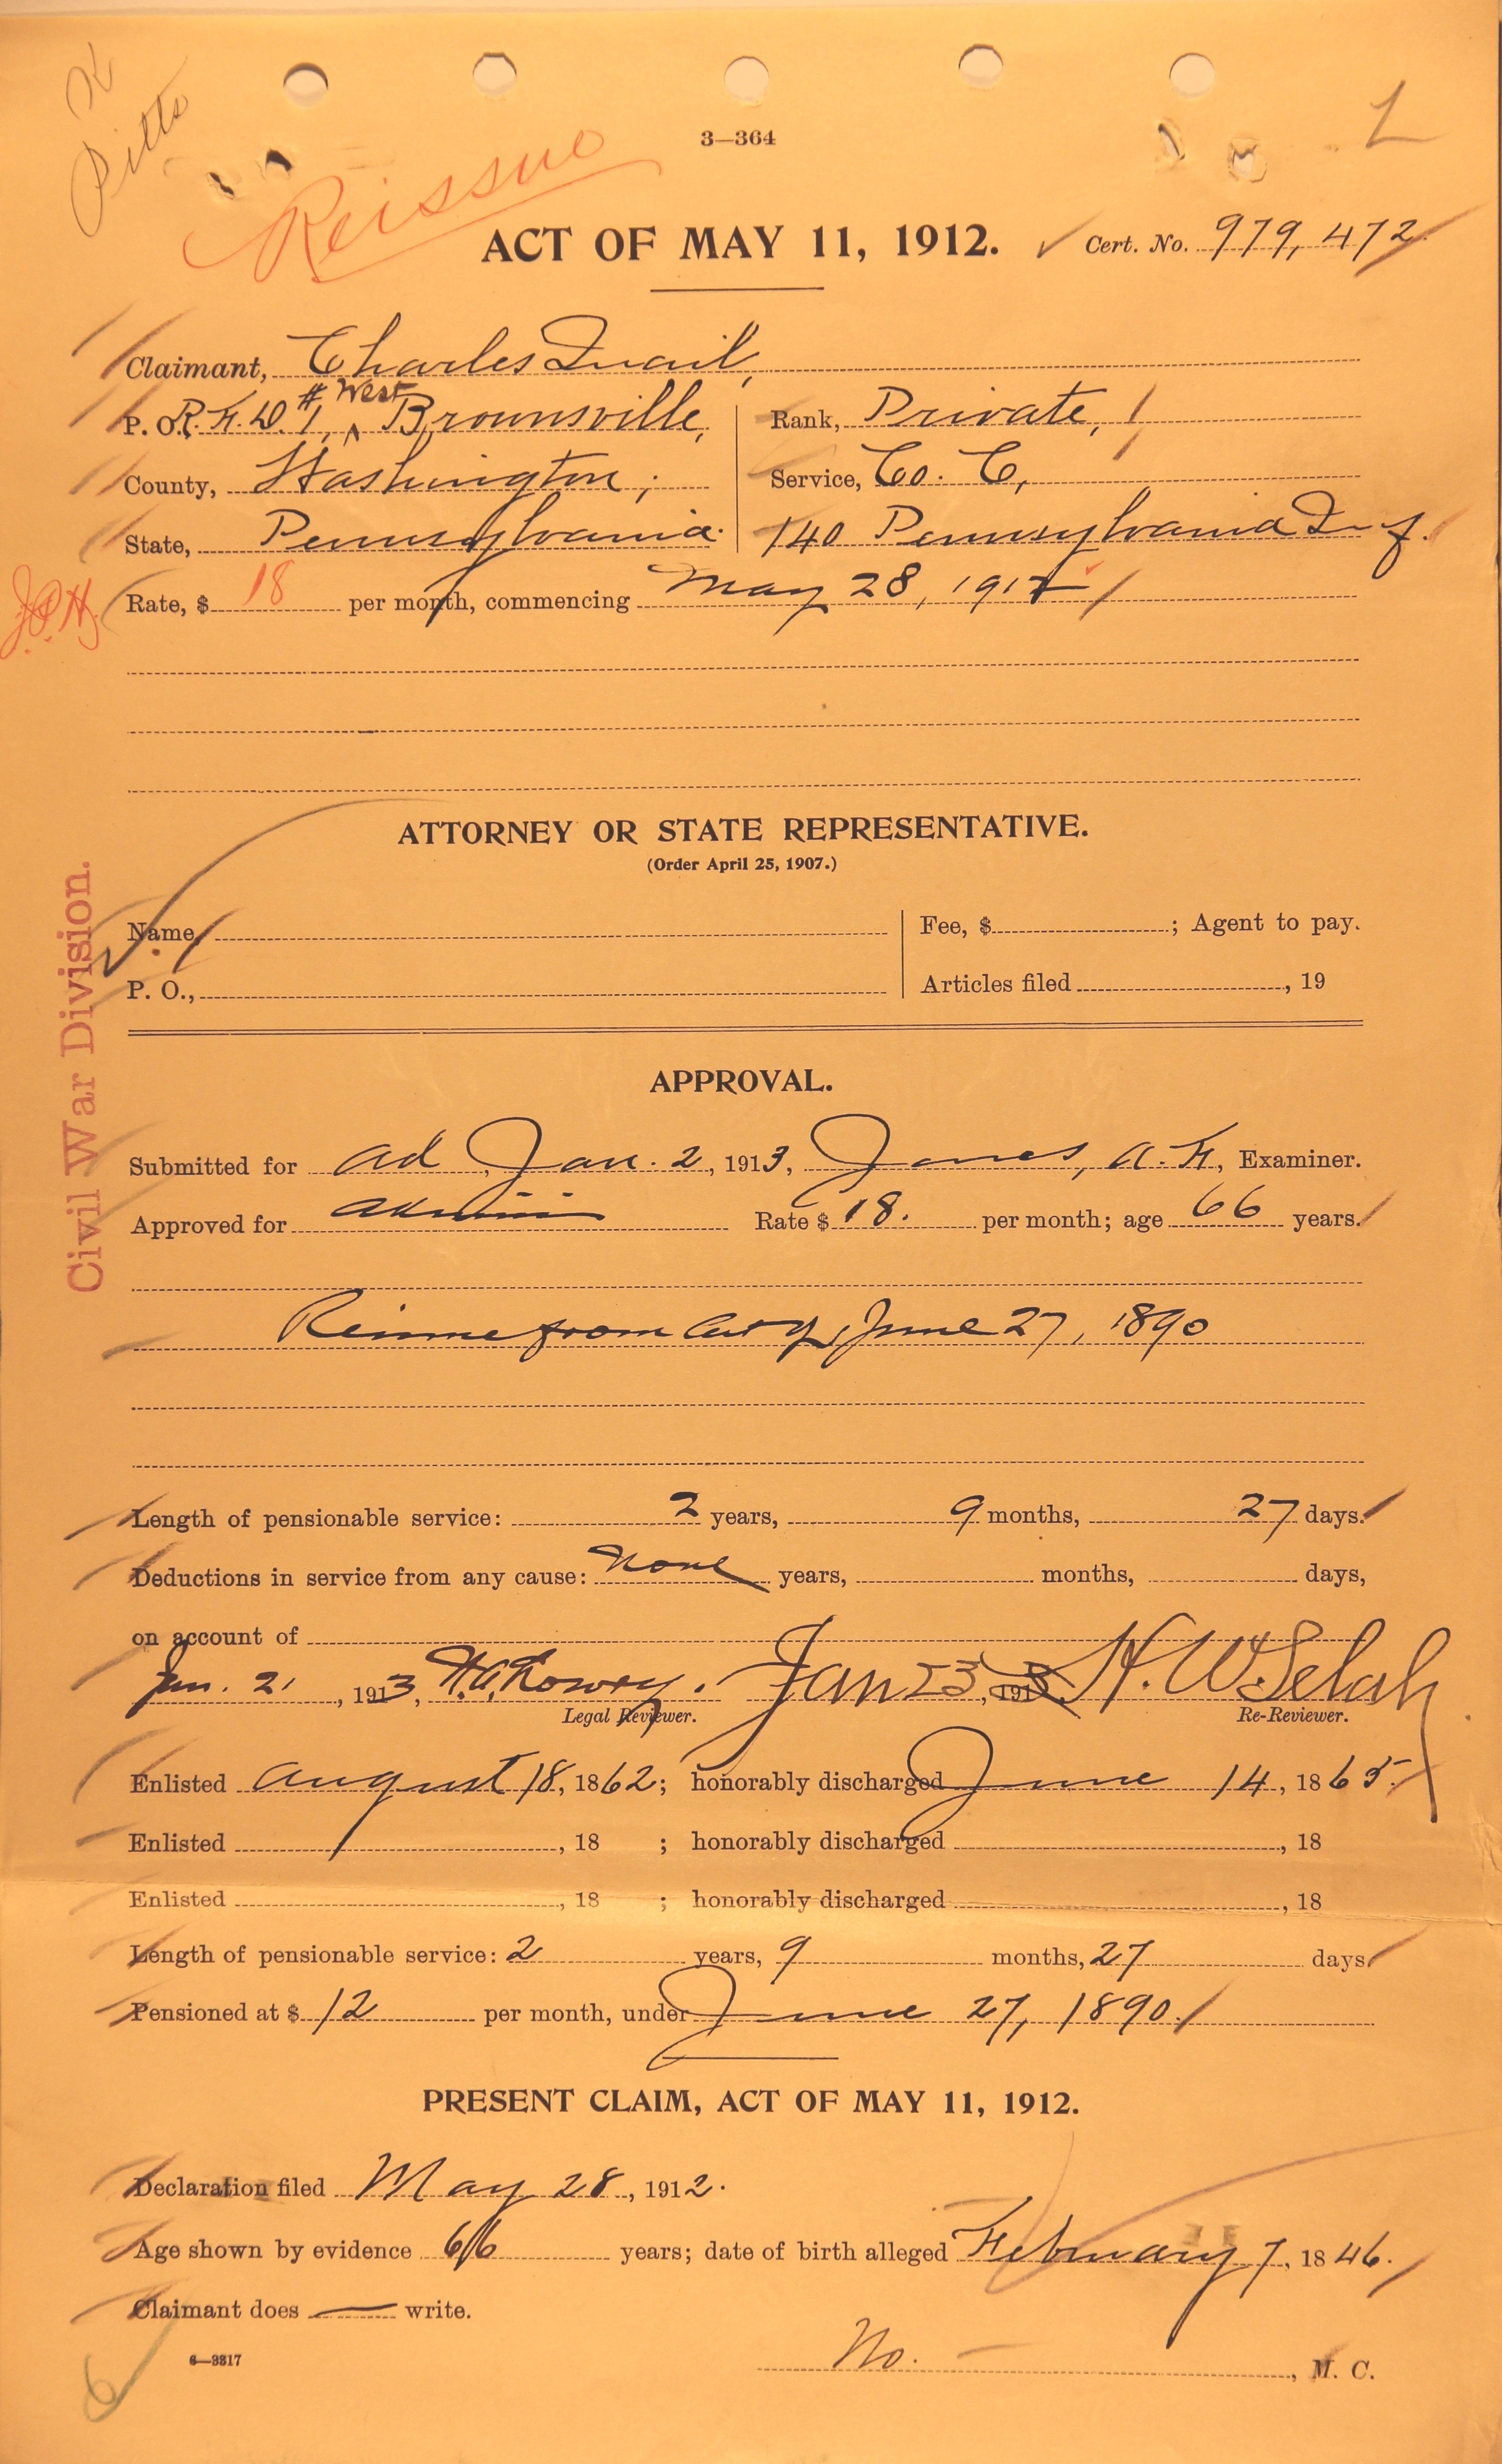 K
Pitts
3—364
L
Reissue
ACT OF MAY 11, 1912.
Cert. No. 979,472
Claimant, Charles Quail,
P. O. R.F.D. #1, West Brownsville,
Rank, Private,
County, Washington;
Service, Co. C,
State, Pennsylvania.
140 Pennsylvania Inf.
Rate, $ 18 per month, commencing May 28, 1912
ATTORNEY OR STATE REPRESENTATIVE.
(Order April 25, 1907.)
Name,
Fee, $ ; Agent to pay.
P. O.,
Articles filed , 19
Civil War Division.
APPROVAL.
Submitted for ad, Jan. 2, 1913, Jones, A. F., Examiner.
Approved for admission Rate $ 18. per month; age 66 years.
Reissue from Act of June 27, 1890
Length of pensionable service: 2 years, 9 months, 27 days.
Deductions in service from any cause: none years, months, days,
on account of
Jan. 21, 1913, Legal Reviewer.
Jan 23, 1913. H. W. Selah Re-Reviewer.
Enlisted August 18, 1862; honorably discharged June 14, 1865.
Enlisted , 18 ; honorably discharged , 18
Enlisted , 18 ; honorably discharged , 18
Length of pensionable service: 2 years, 9 months, 27 days.
Pensioned at $ 12 per month, under June 27, 1890.
PRESENT CLAIM, ACT OF MAY 11, 1912.
Declaration filed May 28, 1912.
Age shown by evidence 66 years; date of birth alleged February 7, 1846.
Claimant does — write.
6—3317
No. — , M. C.
6